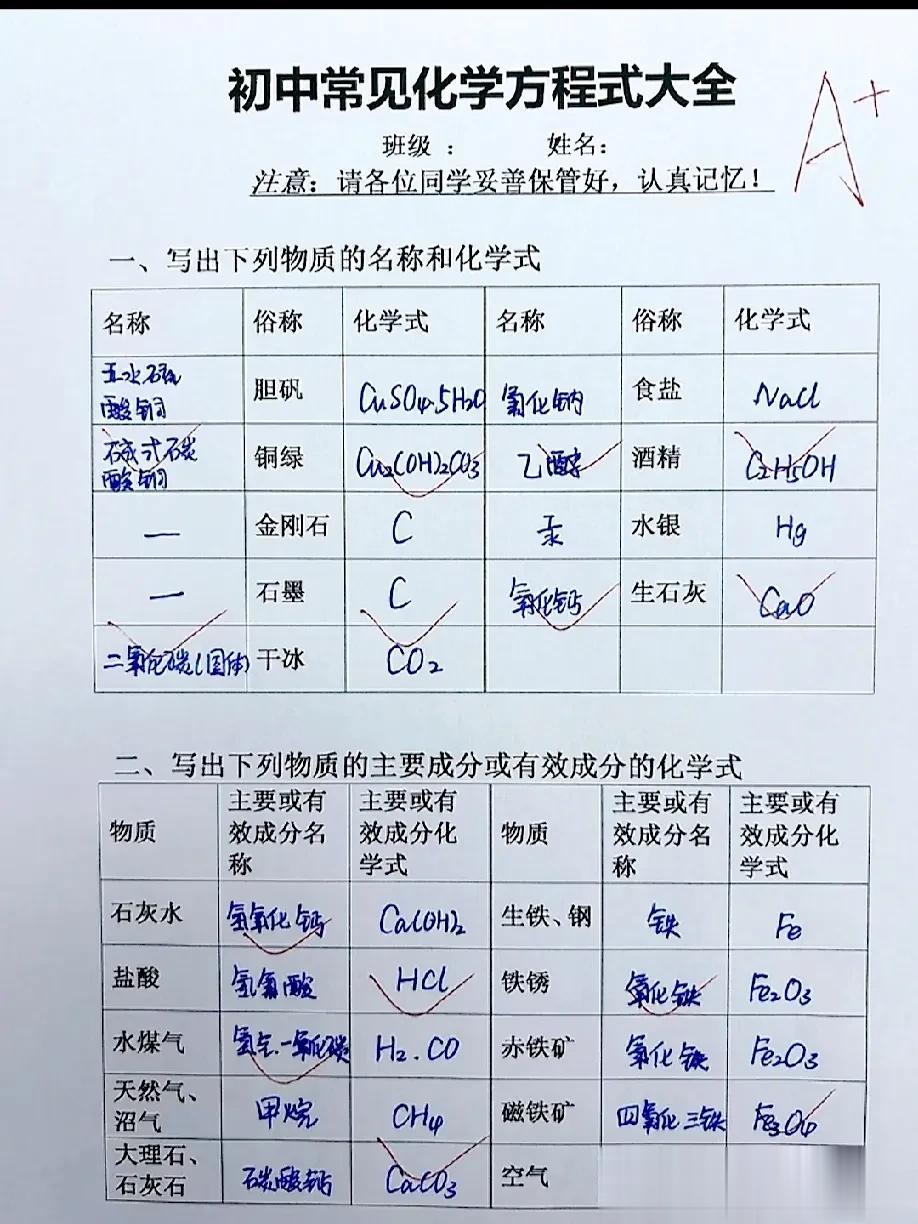 初中常见化学方程式大全
A+
班级： 姓名：
注意：请各位同学妥善保管好，认真记忆！
一、写出下列物质的名称和化学式
名称 俗称 化学式 名称 俗称 化学式
五水硫酸铜 胆矾 CuSO4.5H2O 氯化钠 食盐 NaCl
碱式碳酸铜 铜绿 Cu2(OH)2CO3 乙醇 酒精 C2H5OH
— 金刚石 C 汞 水银 Hg
— 石墨 C 氧化钙 生石灰 CaO
二氧化碳(固体) 干冰 CO2
二、写出下列物质的主要成分或有效成分的化学式
物质 主要或有效成分名称 主要或有效成分化学式 物质 主要或有效成分名称 主要或有效成分化学式
石灰水 氢氧化钙 Ca(OH)2 生铁、钢 铁 Fe
盐酸 氢氯酸 HCl 铁锈 氧化铁 Fe2O3
水煤气 氢气.一氧化碳 H2.CO 赤铁矿 氧化铁 Fe2O3
天然气、沼气 甲烷 CH4 磁铁矿 四氧化三铁 Fe3O4
大理石、石灰石 碳酸钙 CaCO3 空气